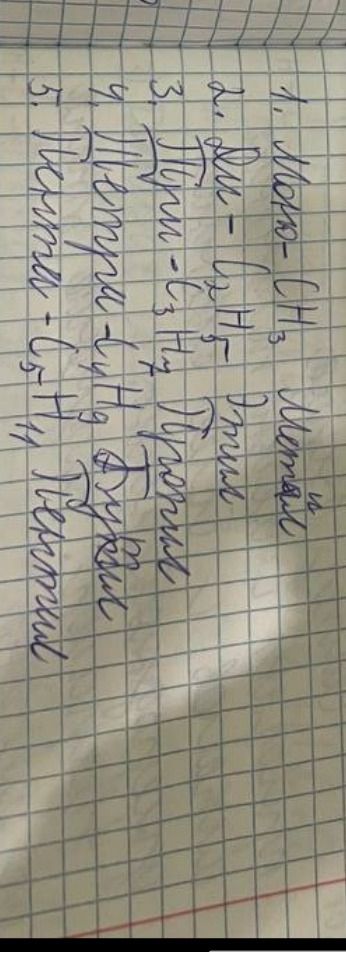 1. Моно - CH3 Метил
2. Ди - C2H5 Этил
3. Три - C3H7 Пропил
4. Тетра - C4H9 Бутил
5. Пента - C5H11 Пентил